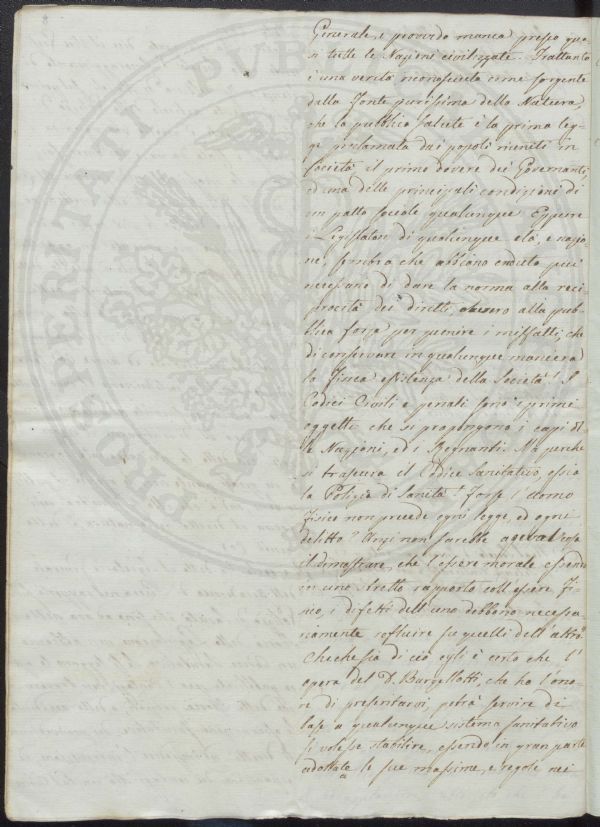 8
Generale, e provvido manca presso qua-
si tutte le Nazioni civilizzate. Frattanto
è una verità riconosciuta come sorgente
dalla Fonte purissima della Natura,
che la pubblica salute è la prima leg-
ge proclamata dai popoli riuniti in
società il primo dovere dei Governanti,
ed una delle principali condizioni di
un patto sociale qualunque. Eppure
i Legislatori di qualunque età, e nazio-
ne, sembra che abbiano creduto più
necessario di dare la norma alla reci-
procità dei diretti, ovvero alla pub-
blica forza per punire i misfatti, che
di conservare in qualunque maniera
la fisica esistenza della Società! I
Codici Civili e penali sono i primi
oggetti che si propongono i capi del-
le Nazioni, ed i Regnanti. Ma perché
si trascura il Codice Sanitativo, ossia
la Polizia di Sanità? Forse l'uomo
Fisico non precede ogni legge, ed ogni
delitto? Anzi non sarebbe agevol cosa
il dimostrare, che l'essere morale essendo
in uno stretto rapporto coll'essere Fi-
sico, i difetti dell'uno debbono necessa-
riamente refluire su quelli dell'altro?
Checché sia di ciò egli è certo che l'
opera del D. Barzellotti, che ho l'ono-
re di presentarvi, potrà servire di
base a qualunque sistema sanitativo
si volesse stabilire, essendo in gran parte
adottate le sue massime, e regole nei
PROSPERITATI PUBLICAE